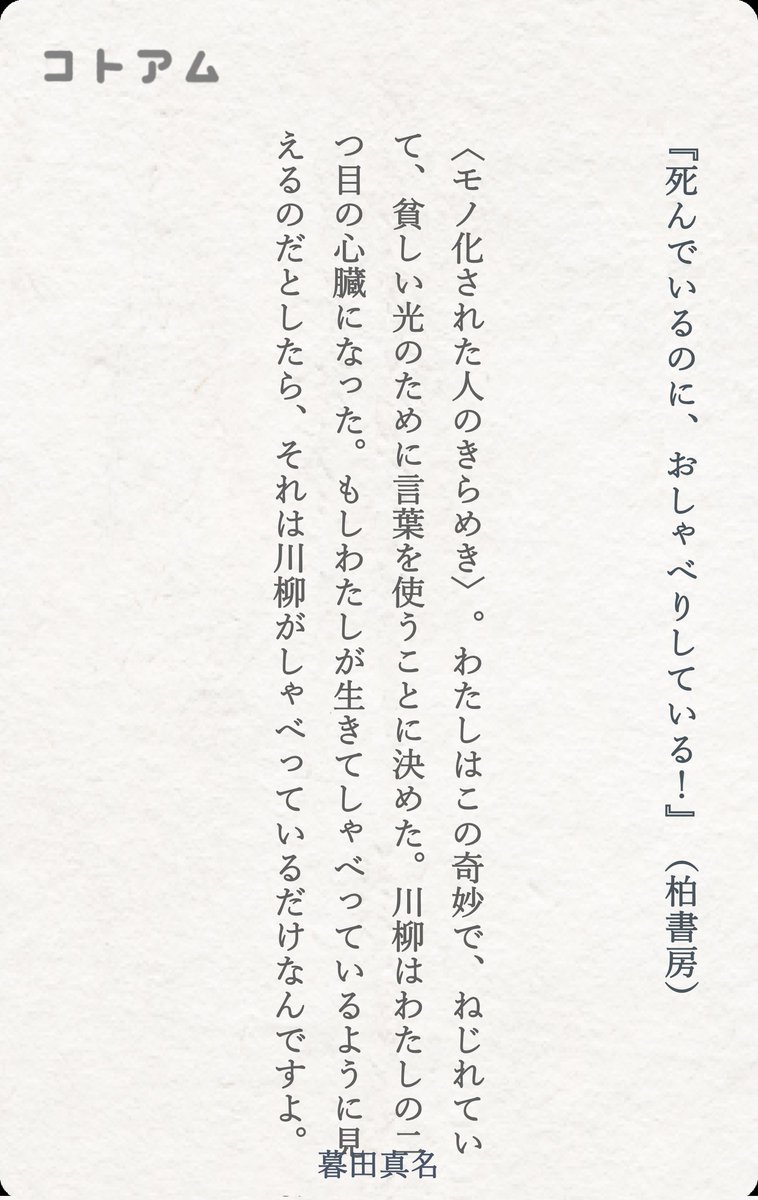 コトアム
『死んでいるのに、おしゃべりしている！』（柏書房）
〈モノ化された人のきらめき〉。わたしはこの奇妙で、ねじれてい
て、貧しい光のために言葉を使うことに決めた。川柳はわたしの二
つ目の心臓になった。もしわたしが生きてしゃべっているように見
えるのだとしたら、それは川柳がしゃべっているだけなんですよ。
暮田真名